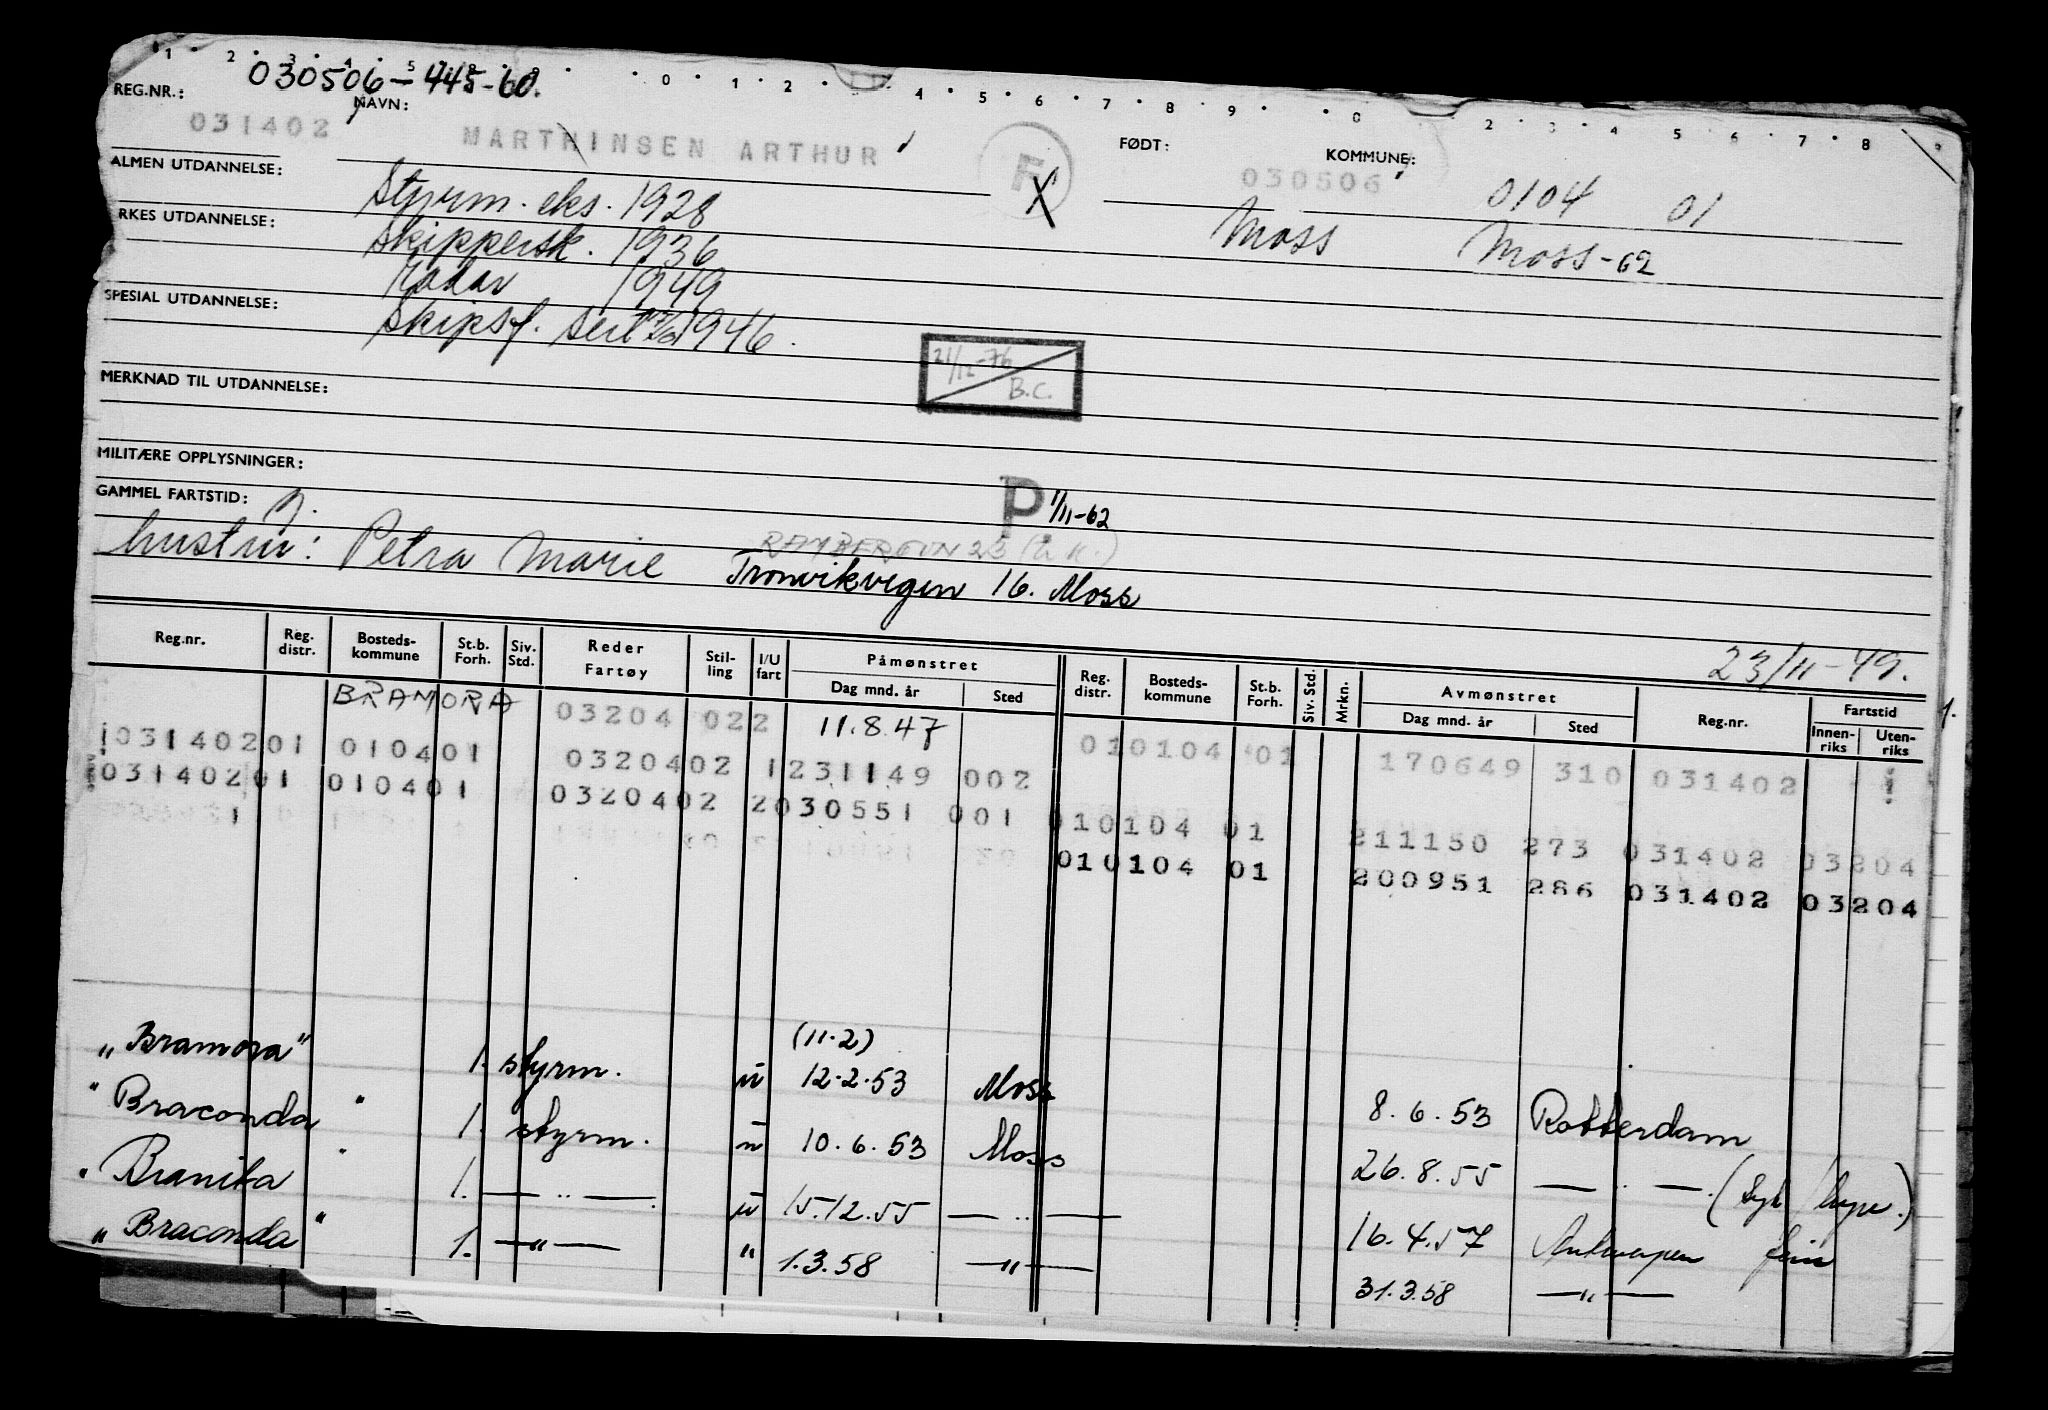 1 2 3 4 5 0 1 2 4 5 6 7 8 9 0 2 3 4 5 6 7 8 9
REG.NR.: 030506-445-60. NAVN: FØDT: KOMMUNE:
031402 MARTHINSEN ARTHUR F X 030506 0104 01
ALMEN UTDANNELSE: Styrm. eks. 1928 Moss Moss-62
RKES UTDANNELSE: Skippersk. 1936
Radar 1949
SPESIAL UTDANNELSE: Skipsf. sert 1946.
21/12-76 B.C.
MERKNAD TIL UTDANNELSE:
MILITÆRE OPPLYSNINGER:
P 1/11-62
GAMMEL FARTSTID:
hustru: Petra Marie Tronvikvegen 16. Moss
23/11-49.
Reg.nr. Reg. distr. Bosteds-kommune St.b. Forh. Siv. Std. Reder Fartøy Stil-ling I/U fart Påmønstret Dag mnd. år Sted Reg. distr. Bosteds-kommune St.b. Forh. Siv. Std. Mrkn. Avmønstret Dag mnd. år Sted Reg.nr. Fartstid Innen-riks Uten-riks
BRAMORA 03204 022 11.8.47 1.
03140201 010401 0320402 1231149 002 010104 01 170649 310 031402
03140201 010401 0320402 2030551 001 010104 01 211150 273 031402 03204
010104 01 200951 286 031402 03204
(11.2)
"Bramora" 1. styrm. u 12.2.53 Moss 8.6.53 Rotterdam
"Braconda" 1. styrm. u 10.6.53 Moss 26.8.55 — " —
"Branita" 1. — " — u 15.12.55 — " — 16.4.57 Antwerpen ferie
"Braconda" 1. — " — " 1.3.58 — " — 31.3.58 — " —